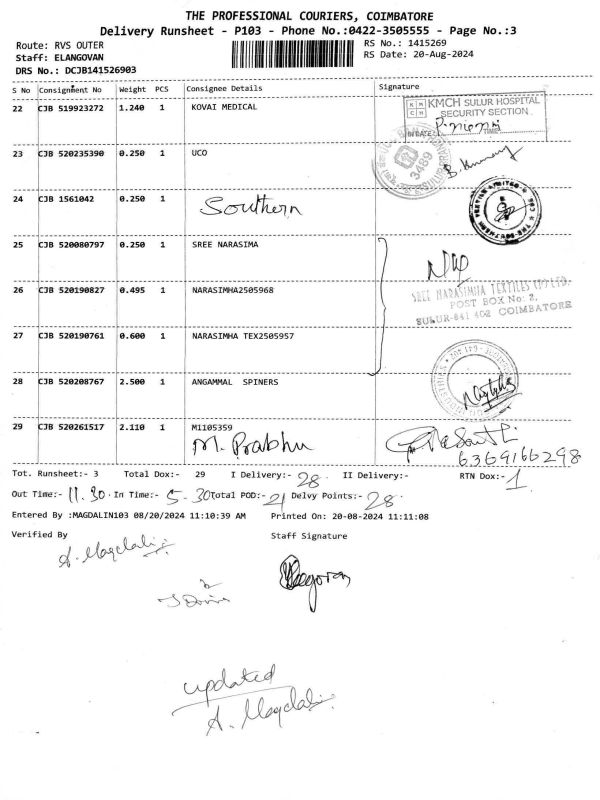 THE PROFESSIONAL COURIERS, COIMBATORE
Delivery Runsheet - P103 - Phone No.:0422-3505555 - Page No.:3
Route: RVS OUTER
RS No.: 1415269
Staff: ELANGOVAN
RS Date: 20-Aug-2024
DRS No.: DCJB141526903
S No Consignment No Weight PCS Consignee Details Signature
22 CJB 519923272 1.240 1 KOVAI MEDICAL
KMCH SULUR HOSPITAL
SECURITY SECTION
IN DATE: TIME
23 CJB 520235390 0.250 1 UCO
3489
24 CJB 1561042 0.250 1 Southern
25 CJB 520080797 0.250 1 SREE NARASIMA
26 CJB 520190827 0.495 1 NARASIMHA2505968
SREE NARASIMHA TEXTILES (P) LTD.
POST BOX No: 2,
SULUR-641 402 COIMBATORE
27 CJB 520190761 0.600 1 NARASIMHA TEX2505957
28 CJB 520208767 2.500 1 ANGAMMAL SPINERS
29 CJB 520261517 2.110 1 M1105359
M. Prabhu
6369166298
Tot. Runsheet:- 3 Total Dox:- 29 I Delivery:- 28 II Delivery:- RTN Dox:- 1
Out Time:- 11.30 In Time:- 5.30 Total POD:- 21 Delvy Points:- 28
Entered By :MAGDALIN103 08/20/2024 11:10:39 AM Printed On: 20-08-2024 11:11:08
Verified By Staff Signature
A. Magdalin
updated
A. Magdalin